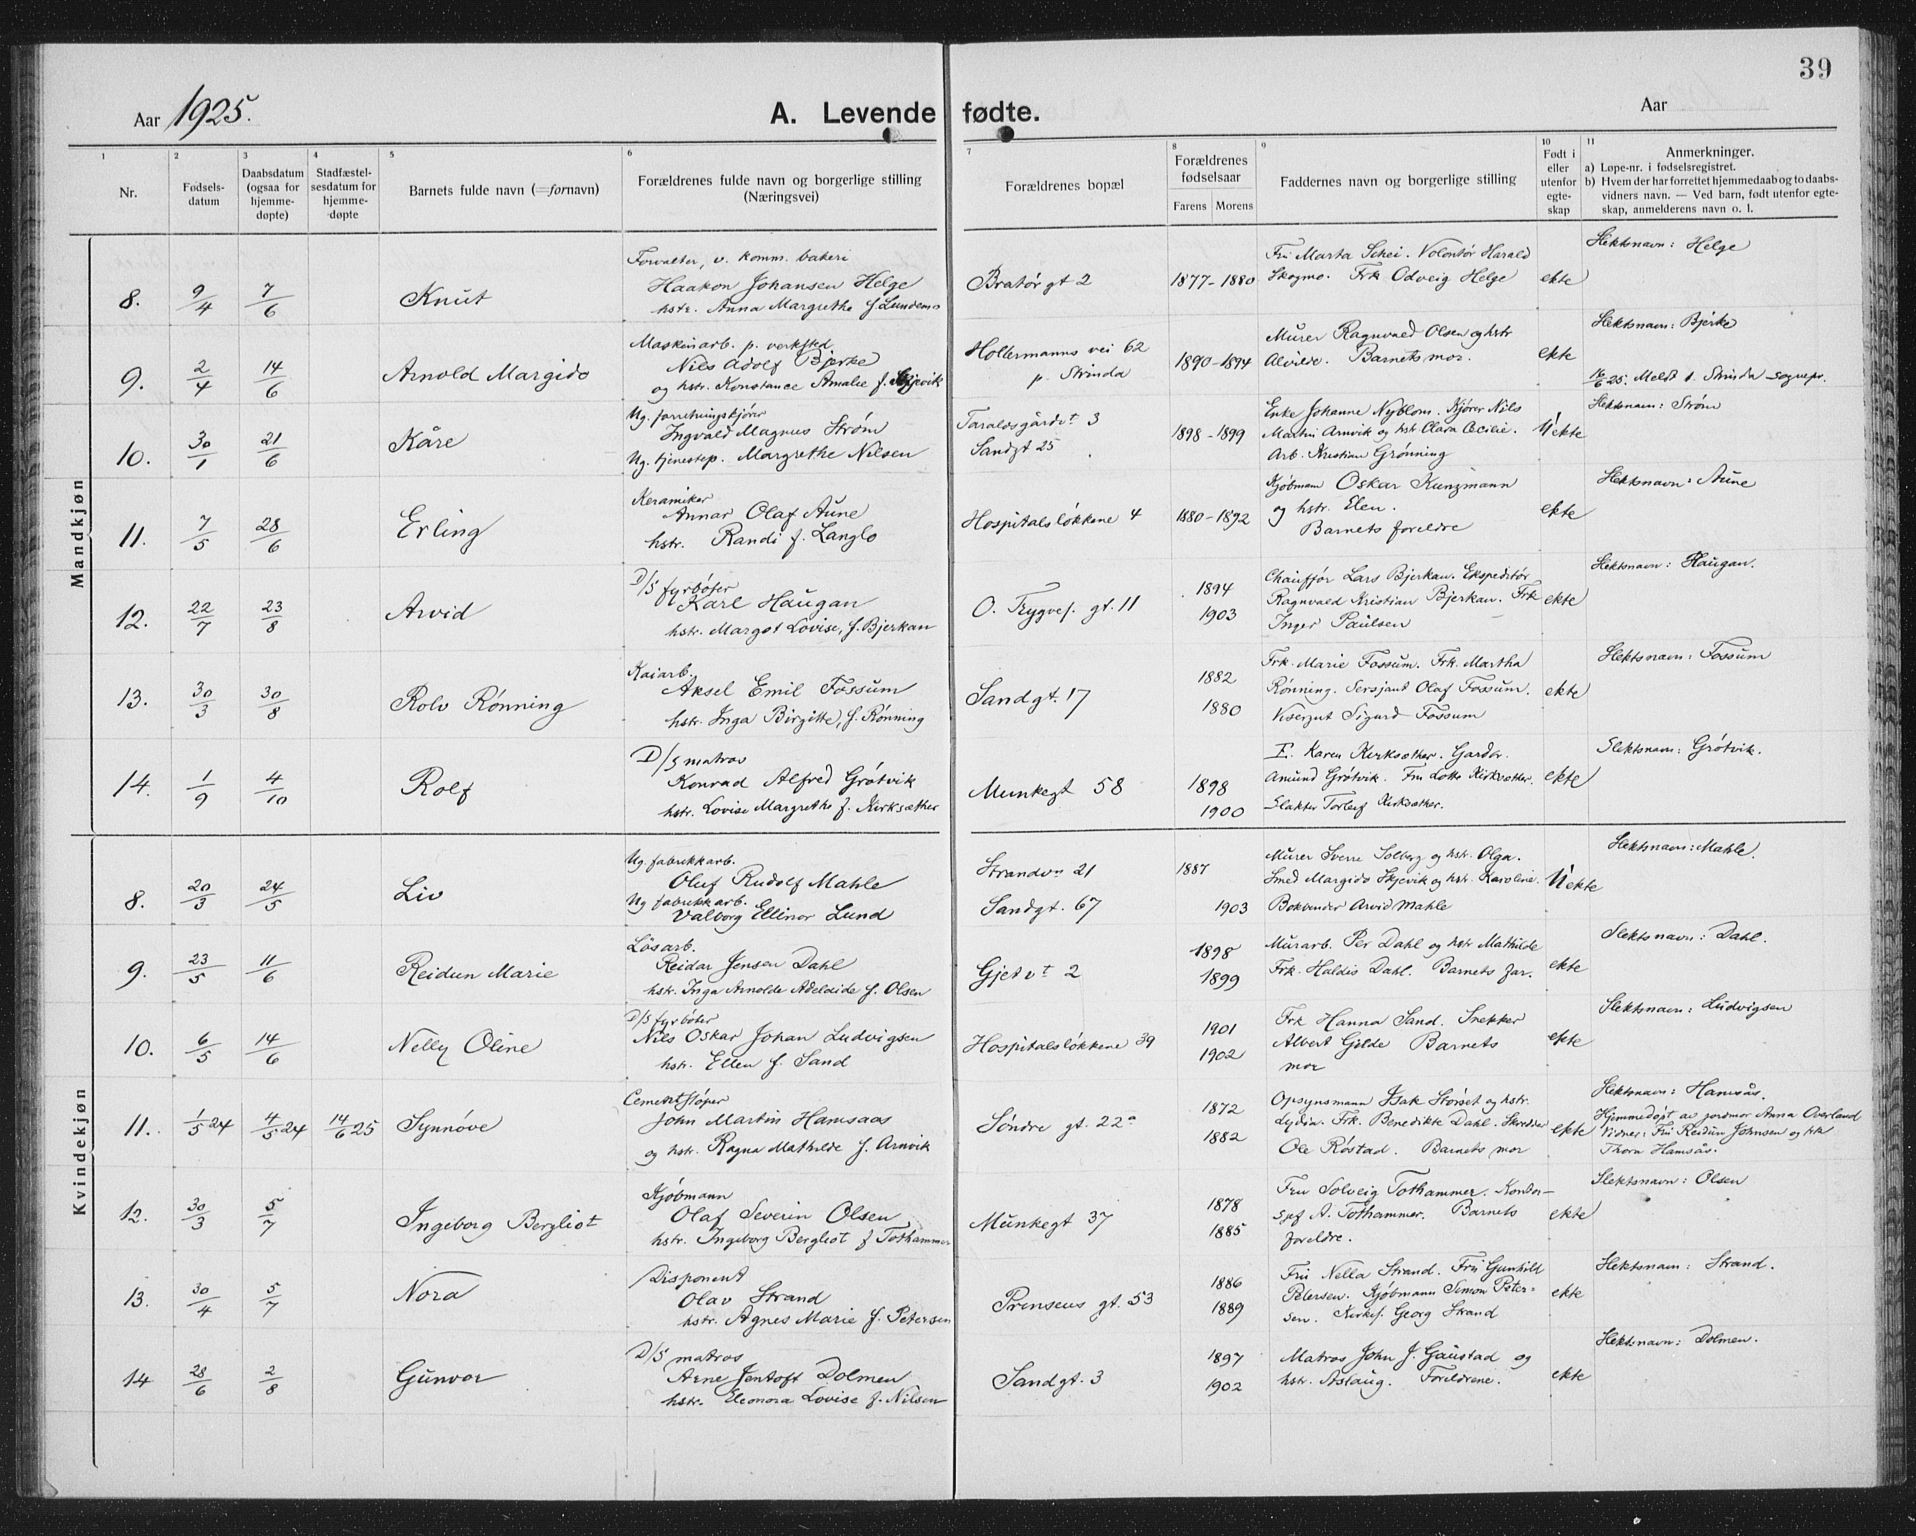 39
Aar 1925.
A. Levende fødte.
Aar
1 2 3 4 5 6 7 8 9 10 11
Nr.
Fødsels-
datum
Daabsdatum
(ogsaa for
hjemme-
døpte)
Stadfæstel-
sesdatum for
hjemme-
døpte
Barnets fulde navn (=fornavn)
Forældrenes fulde navn og borgerlige stilling
(Næringsvei)
Forældrenes bopæl
Forældrenes
fødselsaar
Farens Morens
Faddernes navn og borgerlige stilling
Født i
eller
utenfor
egte-
skap
Anmerkninger.
a) Løpe-nr. i fødselsregistret.
b) Hvem der har forrettet hjemmedaab og to daabs-
vidners navn. — Ved barn, født utenfor egte-
skap, anmelderens navn o. l.
Mandkjøn
8. 9/4 7/6 Knut
Forvalter, v. komm. bakeri
Haakon Johansen Helge
hstr. Anna Margrethe f. Lundemo
Bratørgt 2
1877-1880
Fru Marta Schei. Volontør Harald
Skogmo. Frk Odveig Helge
ekte
Slektsnavn: Helge
9. 2/4 14/6 Arnold Margido
Maskinarb. p. verksted
Nils Adolf Bjerke
og hstr. Konstance Amalie f. Skjevik
Holtermanns vei 62
p. Strinda
1890-1894
Murer Ragnvald Olsen og hstr
Alvilde. Barnets mor.
ekte
Slektsnavn: Bjerke
16/6 25. Meldt t. Strinda sognepr.
10. 30/1 21/6 Kåre
Ug. forretningskjører
Ingvald Magnus Strøm
Ug. tjenestep. Margrethe Nilsen
Taraldsgårdvt 3
Sandgt 25
1898-1899
Enke Johanne Nyblom. Kjører Nils
Martin Arnvik og hst Clara Cecilie.
Arb. Kristian Grønning
Uekte
Slektsnam: Strøm
11. 7/5 28/6 Erling
Keramiker
Annar Olaf Aune
hstr. Randi f. Langlo
Hospitalsløkkene 4
1880-1892
Kjøbmann Oskar Kunzmann
og hstr. Elen.
Barnets foreldre
ekte
Slektsnavn: Aune
12. 22/7 23/8 Arvid
D/S fyrbøter
Karl Haugan
hstr. Margot Lovise, f. Bjerkan
O. Trygves. gt. 11
1894
1903
Chauffør Lars Bjerkan. Ekspeditør
Ragnvald Kristian Bjerkan. Frk
Inger Paulsen
ekte
Slektsnavn: Haugan.
13. 30/3 30/8 Rolv Rønning
Kaiarb.
Aksel Emil Fossum
hstr. Inga Birgitte, f. Rønning
Sandgt. 17
1882
1880
Frk. Marie Fossum. Frk. Martha
Rønning. Sersjant Olaf Fossum.
Visergut Sigurd Fossum
ekte
Slektsnavn: Fossum
14. 1/9 4/10 Rolf
D/S matros
Konrad Alfred Grøtvik
hstr. Lovise Margrethe f. Kirksæther
Munkegt 58
1898
1900
E. Karen Kirksæther. Gardbr.
Amund Grøtvik. Fru Lotte Kirksæther.
Slakter Torleif Kirksæther.
ekte
Slektsnavn: Grøtvik.
Kvindekjøn
8. 20/3 24/5 Liv
Ug. fabrikkarb.
Oluf Rudolf Mahle
Ug fabrikkarb.
Valborg Ellinor Lund
Strandvn 21
Sandgt. 67
1887
1903
Murer Sverre Solberg og hst. Olga.
Smed Margido Skjevik og hst. Karoline.
Bokbinder Arvid Mahle
Uekte
Slektsnavn: Mahle.
9. 23/5 11/6 Reidun Marie
Løsarb.
Reidar Jensen Dahl
hstr. Inga Arnolde Adelaide f. Olsen
Gjetvt 2
1898
1899
Murarb. Per Dahl og hstr Mathilde
Frk. Haldis Dahl. Barnets far.
ekte
Slektsnavn: Dahl.
10. 6/5 14/6 Nelly Oline
D/S fyrbøter
Nils Oskar Johan Ludvigsen
hstr. Ellen f. Sand
Hospitalsløkkene 39
1901
1902
Frk Hanna Sand. Snekker
Albert Gjelde Barnets
mor
ekte
Slektsnavn: Ludvigsen
11. 1/5 24 4/5 24 14/6 25 Synnøve
Cementstøper
John Martin Hamsaas
og hstr. Ragna Mathilde f. Arnvik
Søndre gt. 22a
1872
1882
Opsynsmann Isak Størset og hstr.
Lydia. Frk. Benedikte Dahl. Skredder
Ole Røstad. Barnets mor
ekte
Slektsnavn: Hamsås.
Hjemmedøpt av jordmor Anna Overland
Vidner: Fru Reidun Johnsen og frk
Thora Hamsås.
12. 30/3 5/7 Ingeborg Bergliot
Kjøbmann
Olaf Severin Olsen
hstr. Ingeborg Bergliot f Tothammer
Munkegt 37
1878
1885
Fru Solveig Tothammer. Kontor-
sjef A. Tothammer. Barnets
foreldre.
ekte
Slektsnavn: Olsen
13. 30/4 5/7 Nora
Disponent
Olav Strand
hstr. Agnes Marie f. Petersen
Prinsens gt. 53
1886
1889
Fru Nella Strand. Fru Gunhild
Petersen. Kjøbmann Simon Peter-
sen. Kirkes. Georg Strand
ekte
Slektsnam: Strand.
14 28/6 2/8 Gunvor
D/S matros
Arne Jentoft Dolmen
hstr. Eleonora Lovise f. Nilsen
Sandgt. 3
1897
1902
Matros John J. Gaustad og
hstr. Aslaug. Foreldrene.
ekte
Slektsnavn: Dolmen.